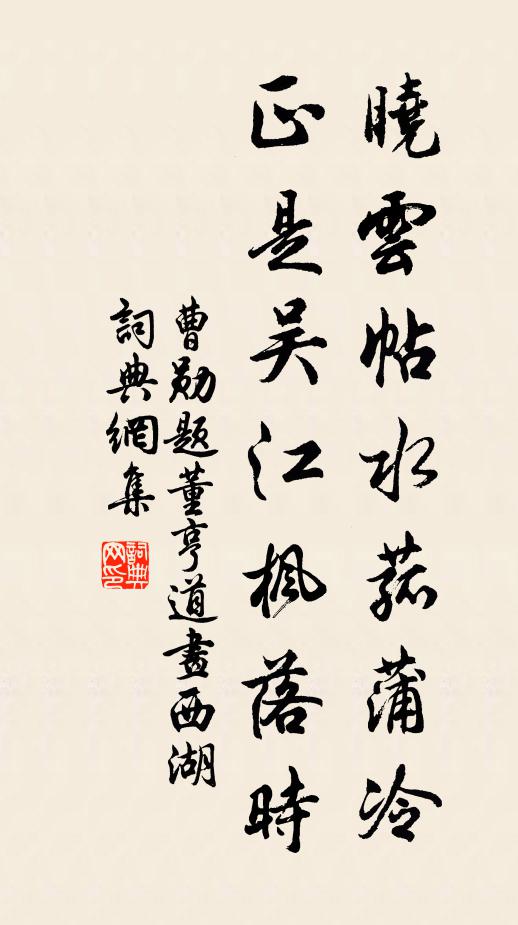 曉雲帖水菰蒲冷
正是吴江楓落時
曹勛題董亨道畫西湖
詞典網集
詞典网印